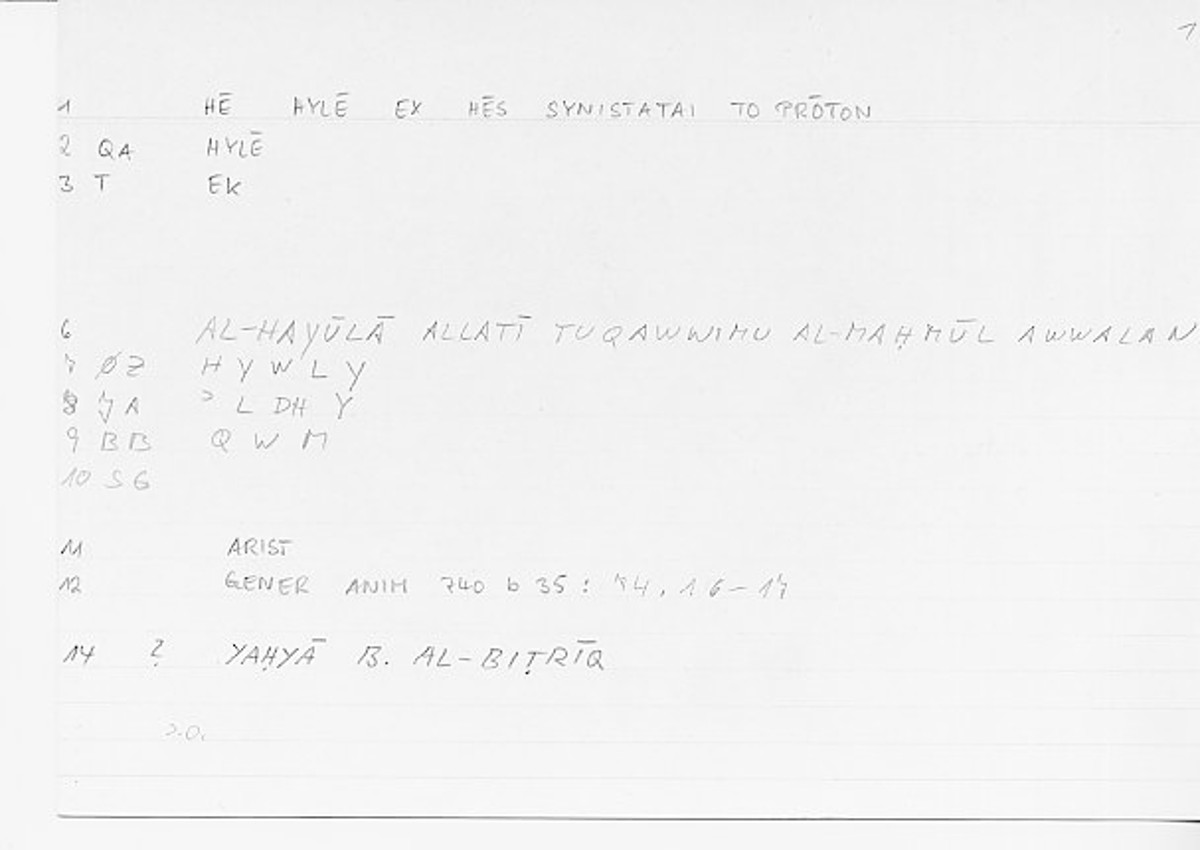 1
1 HĒ HYLĒ EX HĒS SYNISTATAI TO PRŌTON
2 QA HYLĒ
3 T EK
6 AL-HAYŪLĀ ALLATĪ TUQAWWIMU AL-MAḤMŪL AWWALAN
7 ØZ H Y W L Y
8 JA ʾ L DH Y
9 BB Q W M
10 SG
11 ARIST
12 GENER ANIM 740 b 35: 74, 16-17
14 ? YAḤYĀ B. AL-BIṬRĪQ